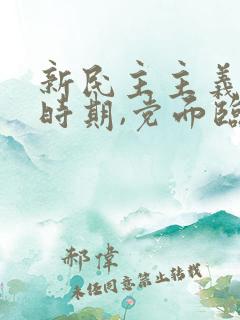 新民主主義
時期,党面臨
郝偉
未經同意禁止轉載